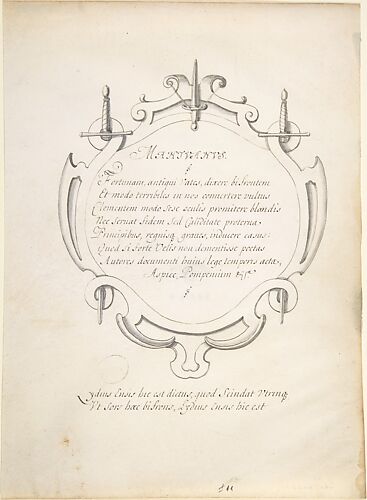 MANTVANVS.
Fortunam, antiqui Vates, dixere bifrontem
Et modo terribiles in nos convertere vultus
Clementem modo sese oculis promittere blandis
Nec servat fidem sed Caliditate proterva
Principibus, regnisq graves, inducere casus:
Quod si forte Velis non dementisse poetas
Autores documenti huius lege temporis acta,
Aspice Pompeium &c
Lydius Ensis hic est dictus, quod Scindat Vtrinq
Vt Sors hæc bifrons, Lydius Ensis hic est